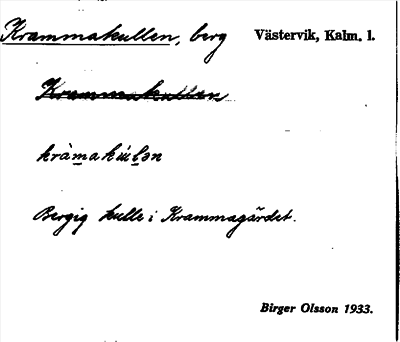 Krammakullen, berg Västervik, Kalm. l.
Krammakullen
kràmakúlən
Bergig kulle i Krammagärdet.
Birger Olsson 1933.